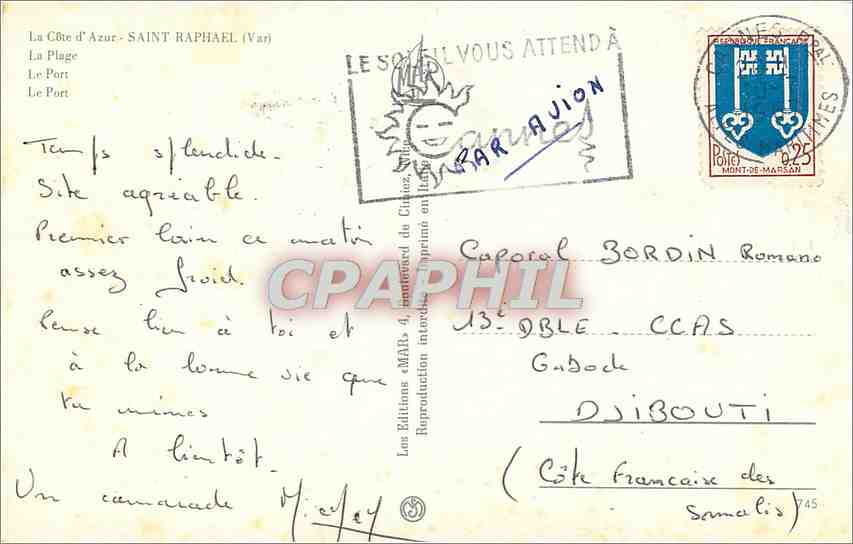 La Côte d'Azur - SAINT RAPHAEL (Var)
La Plage
Le Port
Le Port
Temps splendide.
Site agréable.
Premier bain ce matin
assez froid.
Pense bien à toi et
à la bonne vie que
tu mènes
A bientôt.
Un camarade
LE SOLEIL VOUS ATTEND À
Cannes
PAR AVION
CANNES
ALPES MARITIMES
REPUBLIQUE FRANÇAISE
Postes 0,25
MONT-DE-MARSAN
Les Editions «MAR» 4, Boulevard de Cimiez,
Reproduction interdite Imprimé en Italie
CPAPHIL
Caporal BORDIN Romano
13e DBLE - CCAS
Gabode
DJIBOUTI
(Côte Française des
Somalis)
745